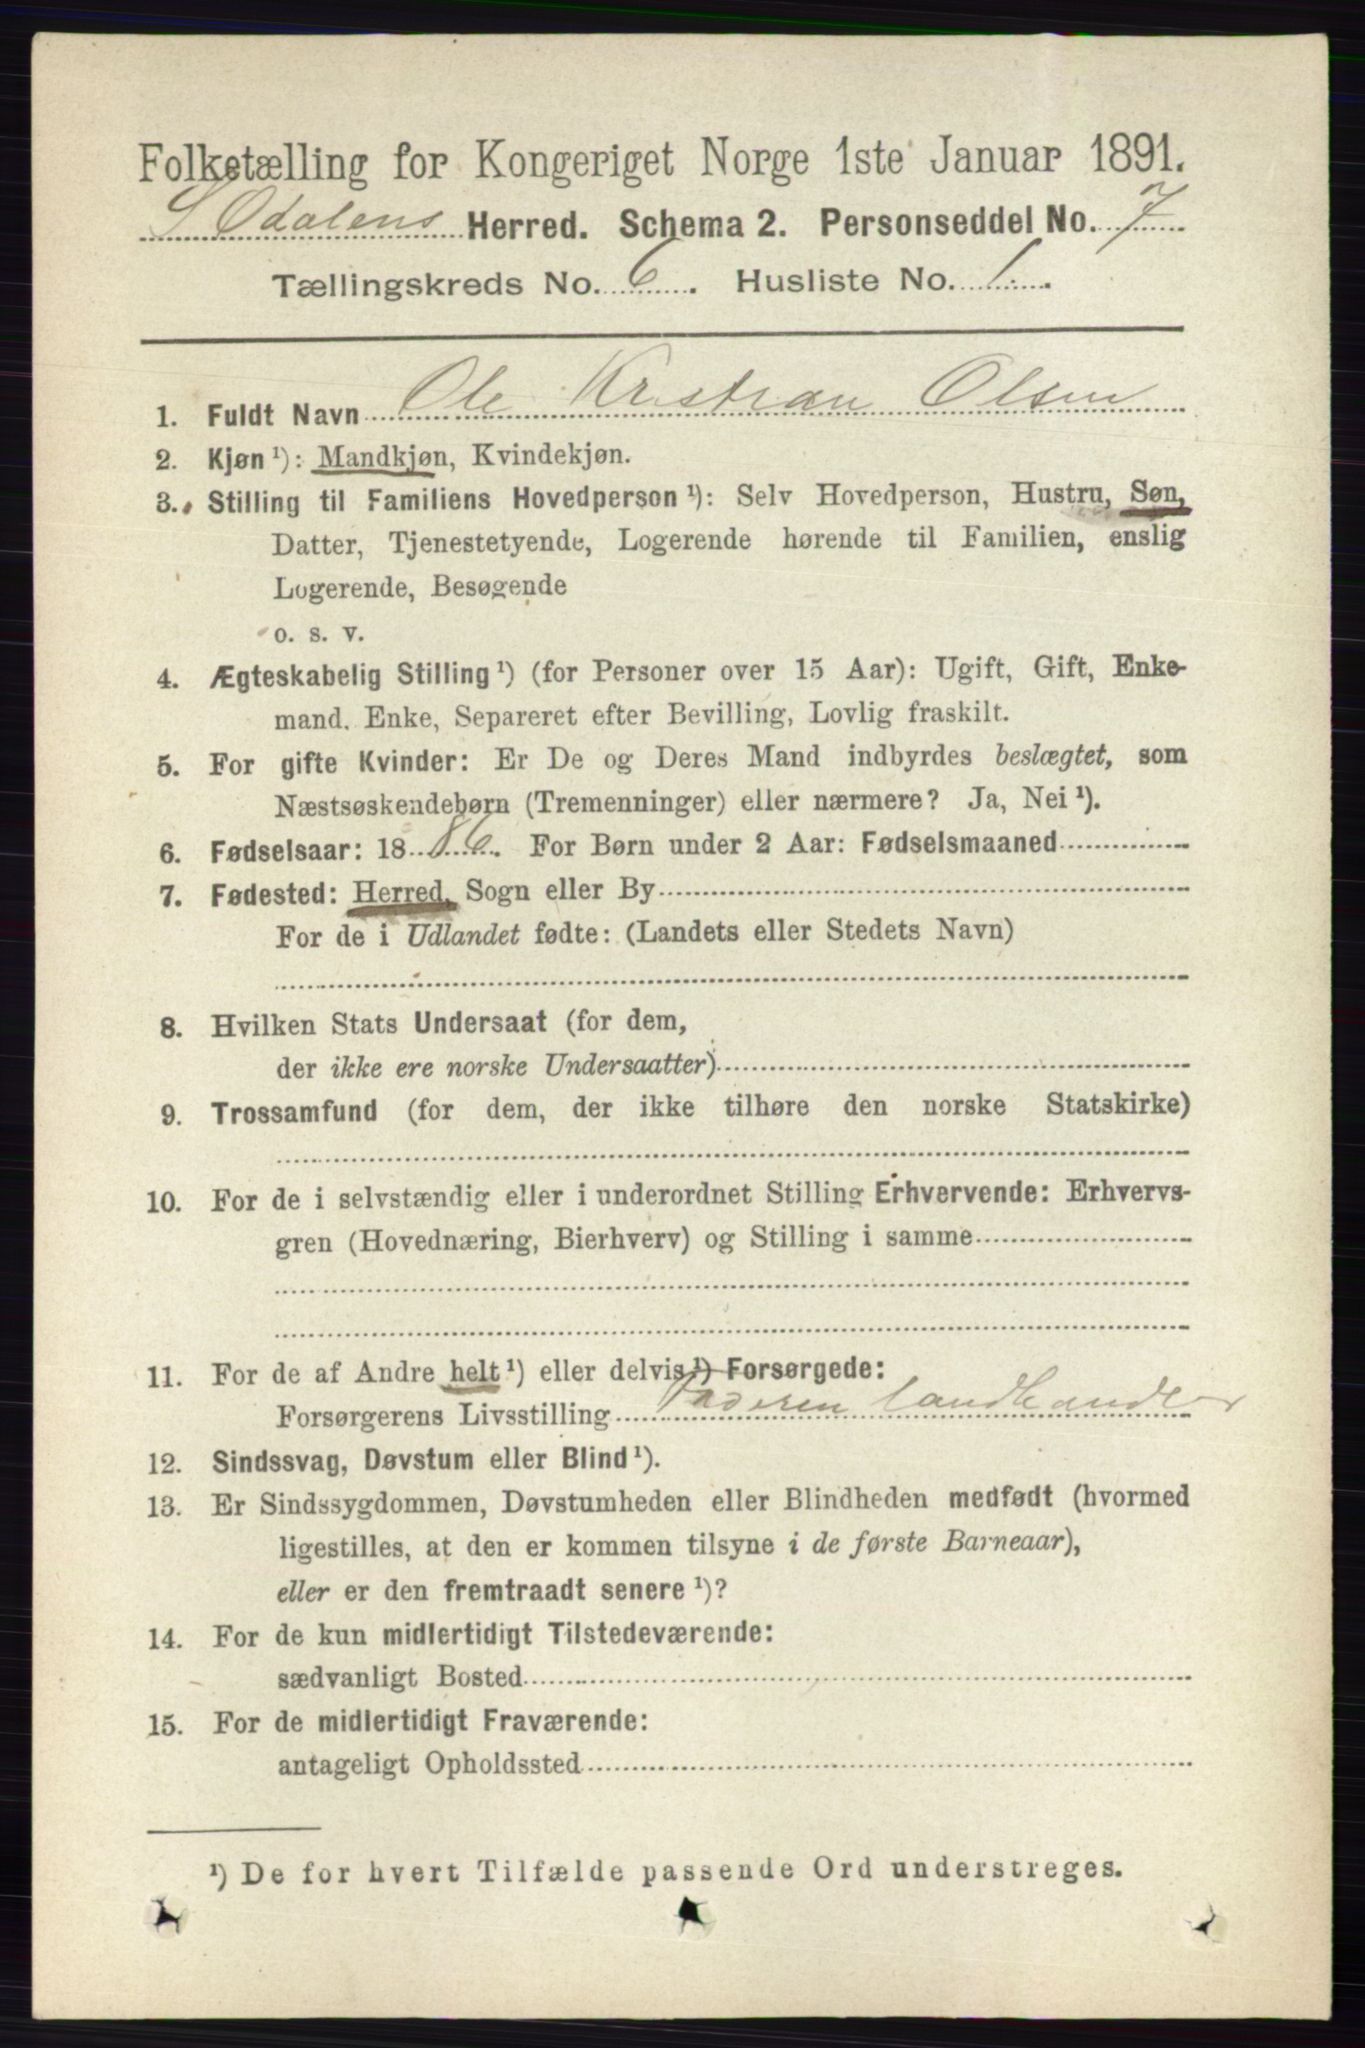 Folketælling for Kongeriget Norge 1ste Januar 1891.
S Odalens Herred. Schema 2. Personseddel No. 7
Tællingskreds No. 6. Husliste No. 1.
1. Fuldt Navn Ole Kristian Olsen
2. Kjøn ¹): Mandkjøn, Kvindekjøn.
3. Stilling til Familiens Hovedperson ¹): Selv Hovedperson, Hustru, Søn,
Datter, Tjenestetyende, Logerende hørende til Familien, enslig
Logerende, Besøgende
o. s. v.
4. Ægteskabelig Stilling ¹) (for Personer over 15 Aar): Ugift, Gift, Enke-
mand, Enke, Separeret efter Bevilling, Lovlig fraskilt.
5. For gifte Kvinder: Er De og Deres Mand indbyrdes beslægtet, som
Næstsøskendebørn (Tremenninger) eller nærmere? Ja, Nei ¹).
6. Fødselsaar: 1886. For Børn under 2 Aar: Fødselsmaaned
7. Fødested: Herred, Sogn eller By
For de i Udlandet fødte: (Landets eller Stedets Navn)
8. Hvilken Stats Undersaat (for dem,
der ikke ere norske Undersaatter)
9. Trossamfund (for dem, der ikke tilhøre den norske Statskirke)
10. For de i selvstændig eller i underordnet Stilling Erhvervende: Erhvervs-
gren (Hovednæring, Bierhverv) og Stilling i samme
11. For de af Andre helt ¹) eller delvis ¹) Forsørgede:
Forsørgerens Livsstilling Faderen landhandler
12. Sindssvag, Døvstum eller Blind ¹).
13. Er Sindssygdommen, Døvstumheden eller Blindheden medfødt (hvormed
ligestilles, at den er kommen tilsyne i de første Barneaar),
eller er den fremtraadt senere ¹)?
14. For de kun midlertidigt Tilstedeværende:
sædvanligt Bosted
15. For de midlertidigt Fraværende:
antageligt Opholdssted
¹) De for hvert Tilfælde passende Ord understreges.